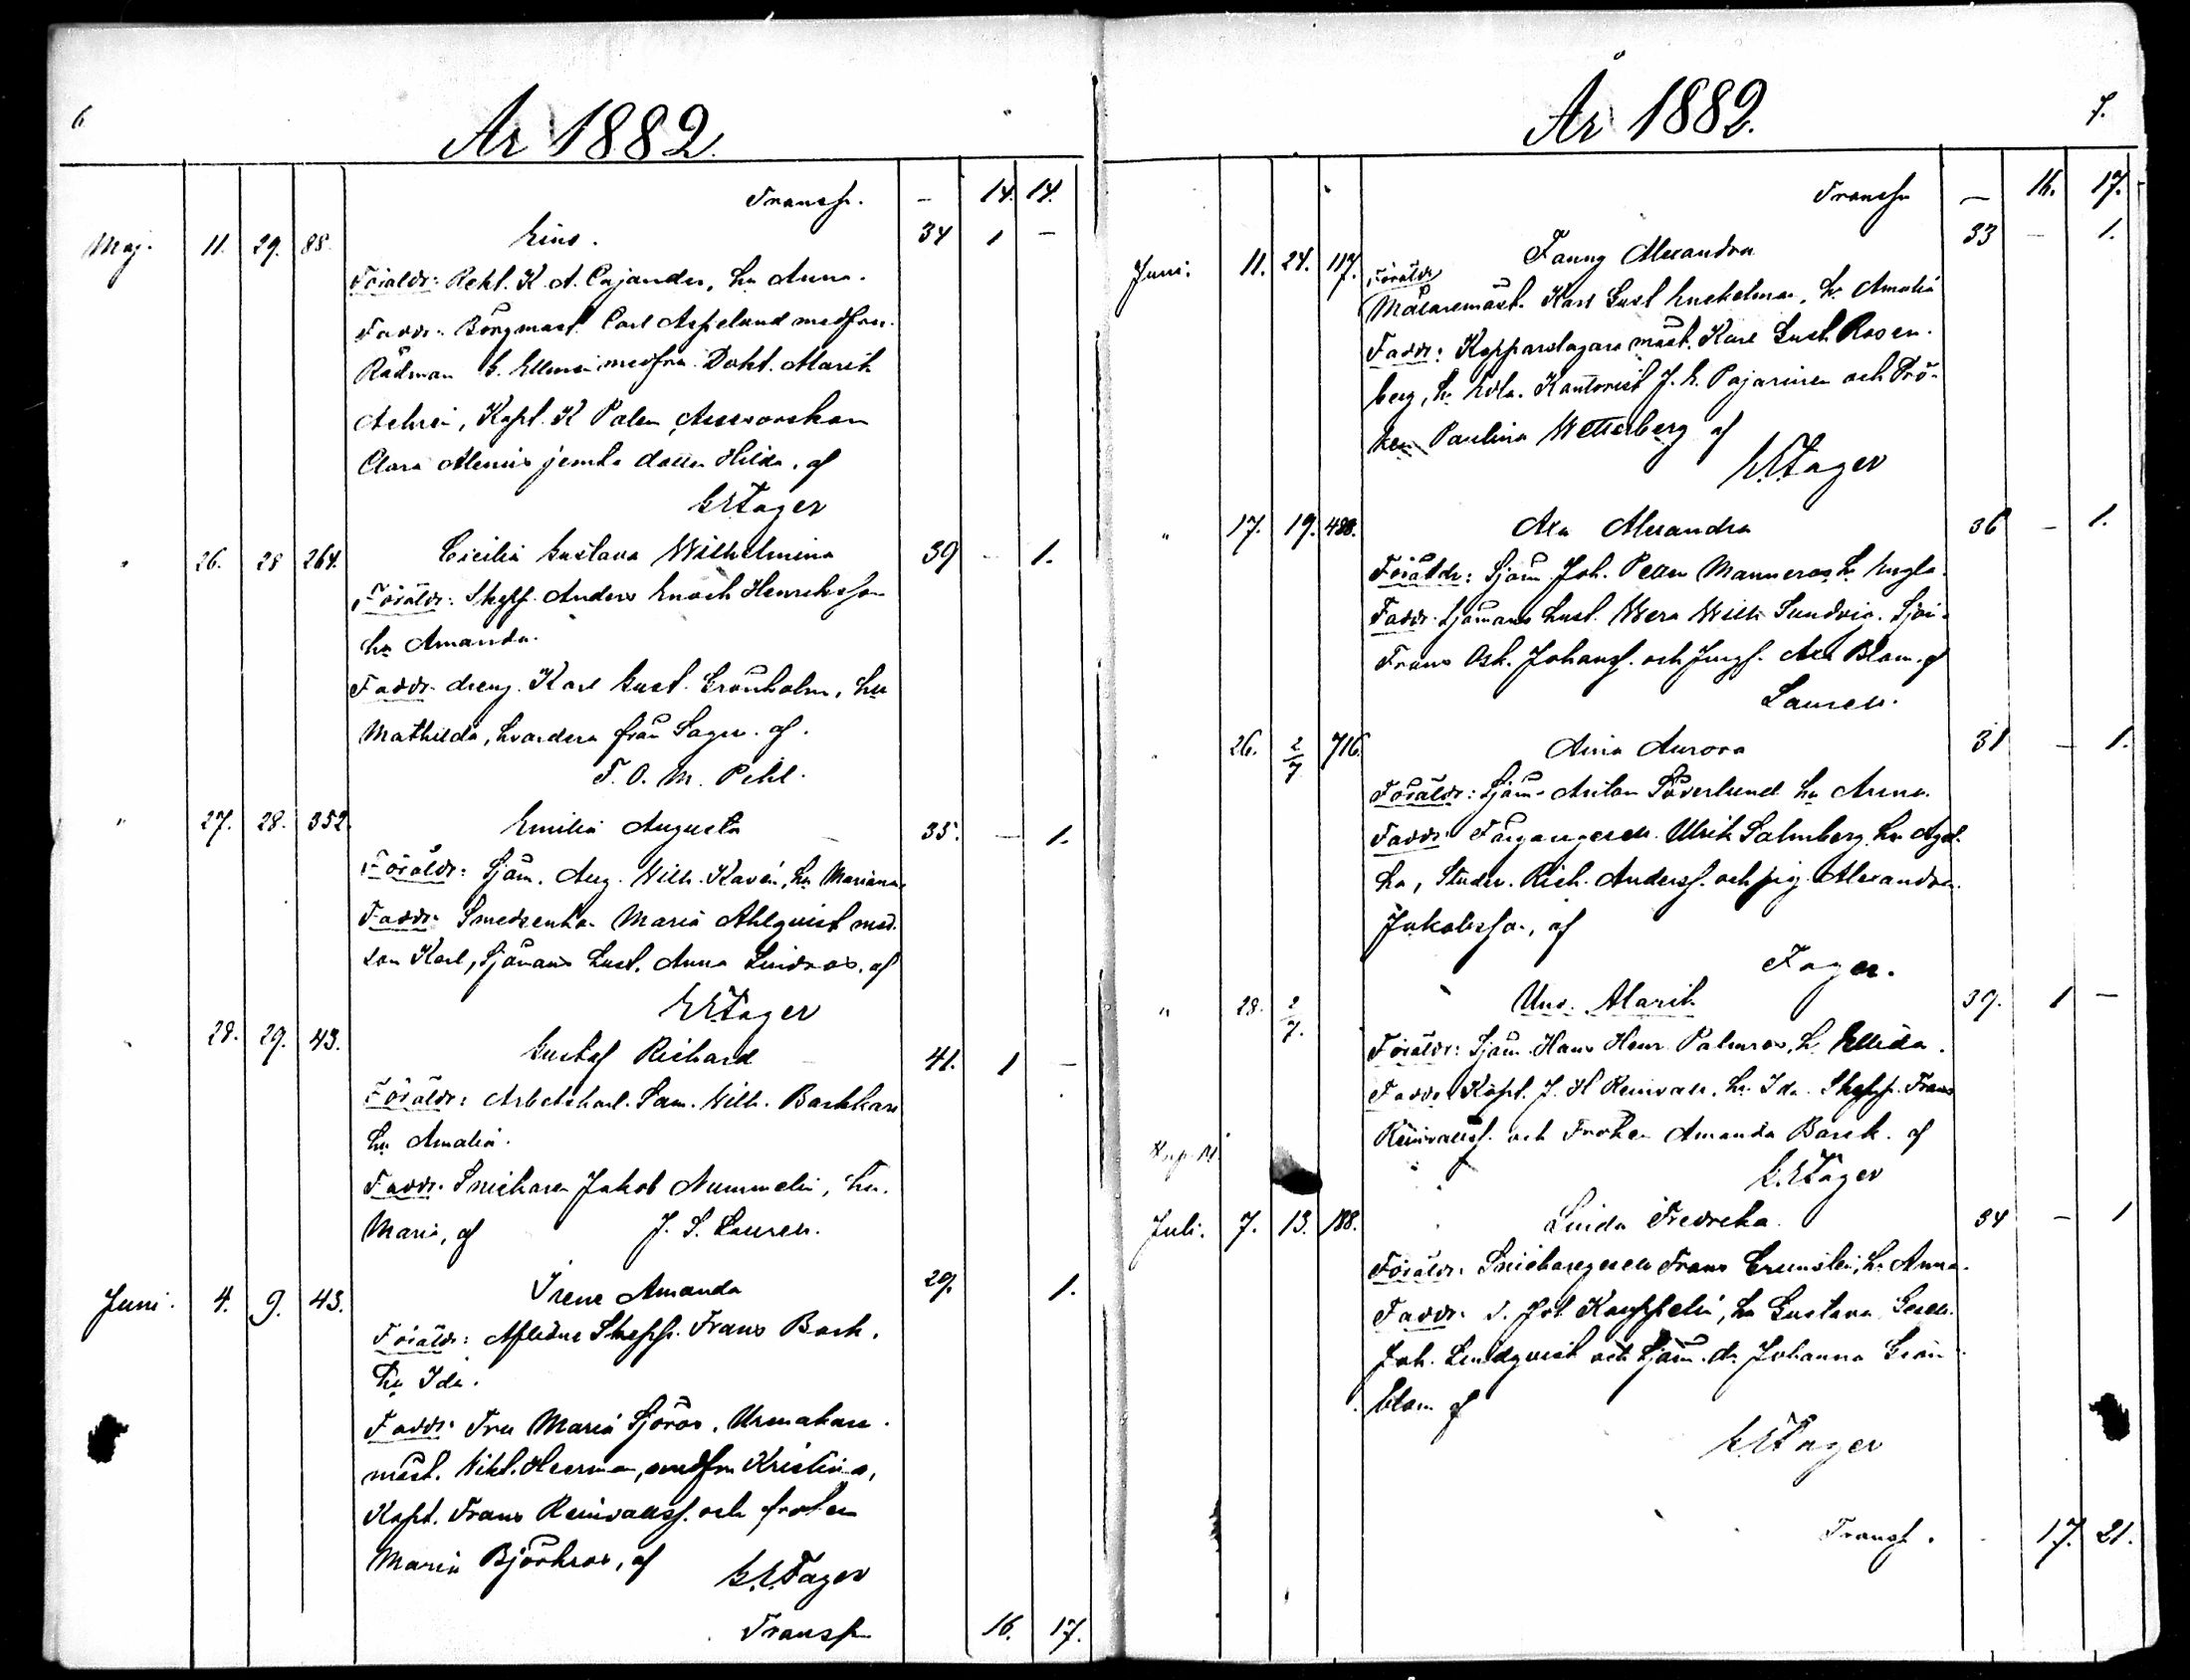 6
År 1882.
Transp. — 14. 14.
Maj. 11. 29. 88. Eino. 34 1 —
Föräldr: Rekt. K. A. Cajander, hu Anna.
Faddr: Borgmäst. Carl Aspelund med fru.
Rådman G. Ellmén med fru. Dokt. Alarik
Achrén, Kapt. K Palen,
Clara Alenius jemte dotter Hilda, af
G E Fager
" 26. 28 264. Cecilia Gustava Wilhelmina 39 — 1.
Föräldr: Skepp. Anders Enoch Henriksson
hu Amanda.
Faddr. dreng. Karl Gust. Grönholm, hu
Mathilda, hvardera från Sagu. af.
F. O. M. Pihl.
" 27. 28. 352. Emilia Augusta 35. — 1.
Föräldr: Sjöm. Aug. Wilh. Kavén, hu Mariana.
Faddr: Smedsenkan Maria Ahlqvist med
son Karl, Sjömans hust. Anna Lindroos. af
G E Fager
" 28. 29. 43. Gustaf Richard 41. 1 —
Föräldr: Arbetskarl. Sam. Wilh. Backkars
hu Amalia.
Faddr. Snickaren Jakob Nummelin, hu.
Maria, af J. S. Lauren.
Juni. 4. 9. 43. Irene Amanda 29. 1.
Föräldr: Aflidne Skepp. Frans Bask.
hu Ida.
Faddr: Fru Maria Sjöros, Urmakare
mäst. Vikt. Heerman, med fru Kristina,
Kapt. Frans Reinvallsf. och fröken
Maria Björkroos, af G. E. Fager
Transp 16. 17.
7.
År 1882.
Transp — 16. 17.
Juni. 11. 24. 117. Fanny Alexandra 33 — 1.
Föräldr
Målaremäst. Karl Gust Enckelman, h. Amalia
Faddr: Kopparslagare mäst. Karl Gust. Rosen-
berg, h. Edla. Kantorist J. E. Pajarinen och Frö-
ken Paulina Wetterberg af
G. E. Fager
" 17. 19. 488. Axa Alexandra 36 — 1.
Föräldr: Sjöm. Joh. Petter Manneros h. Engla.
Faddr: Sjömans hust. Wera Wilh. Sundvis. Sjöm.
Frans Osk. Johansf. och Jungf. Axa Blom. af
Lauren.
26. 2/7 716. Aina Aurora 31 — 1.
Föräldr: Sjöm. Anton Söderlund hu Anna.
Faddr: Färgaregesell. Ulrik Salmberg hu Aga-
ta, Studer. Rich. Andersf. och pig. Alexandra
Jakobsson, af
Fager.
" 28. 2/7. Uno. Alarik 39. 1 —
Föräldr: Sjöm. Hans Henr. Palmros, h. Ellida.
Faddr: Kapt. J. H Reinvall. hu Ida. Skepp. Frans
Reinvallsf. och Fröken Amanda Bask. af
G. E. Fager
Juli. 7. 13. 188. Linda Fredreka. 34 — 1
Föräldr: Snickaregesell Frans Grunstén, h. Anna.
Faddr: S. Joh Kauppelin, hu Gustava Gesell.
Joh. Lindqvist och Sjöm. dr Johanna Grön-
blom af
G E Fager
Transp. 17. 21.